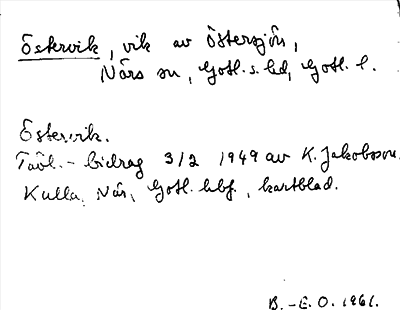 Östervik, vik av Östersjön,
Närs sn, Gotl. s. hd, Gotl. l.
Östervik.
Tävl.-bidrag 3/2 1949 av K. Jakobsson,
Kulla, När, Gotl. hbf., kartblad.
B.-E. O. 1961.